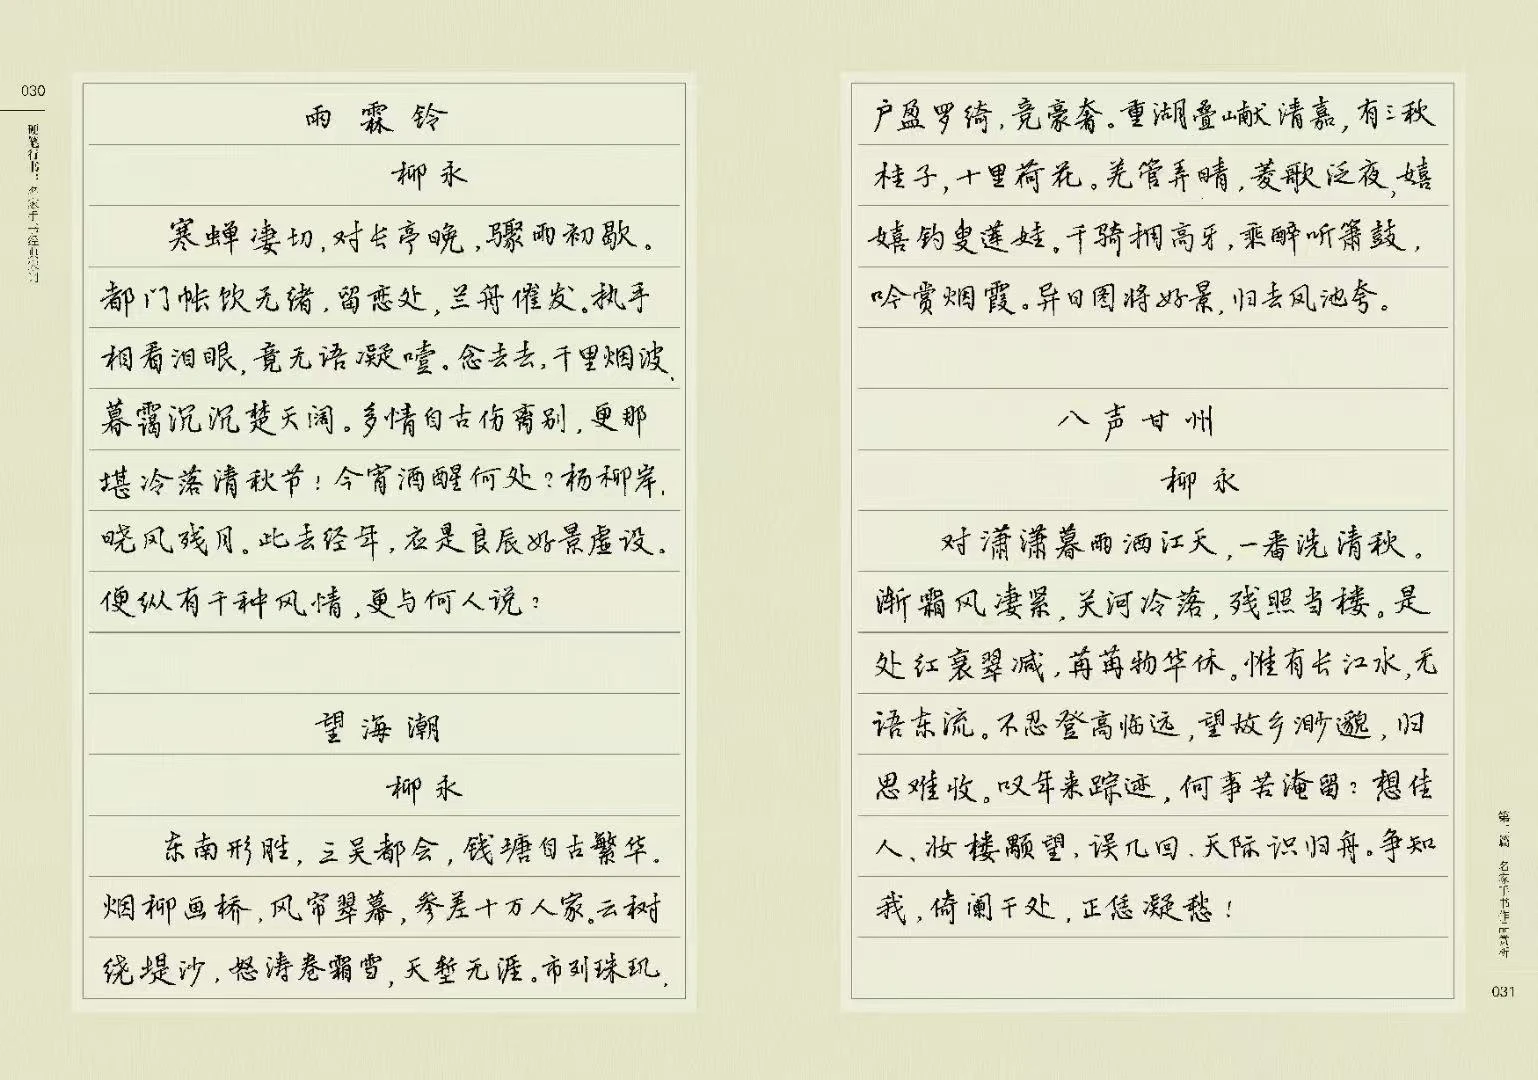 030
硬笔行书:名家手书经典宋词
雨霖铃
柳永
寒蝉凄切,对长亭晚,骤雨初歇。
都门帐饮无绪,留恋处,兰舟催发。执手
相看泪眼,竟无语凝噎。念去去,千里烟波,
暮霭沉沉楚天阔。多情自古伤离别,更那
堪冷落清秋节!今宵酒醒何处?杨柳岸,
晓风残月。此去经年,应是良辰好景虚设。
便纵有千种风情,更与何人说?
望海潮
柳永
东南形胜,三吴都会,钱塘自古繁华。
烟柳画桥,风帘翠幕,参差十万人家。云树
绕堤沙,怒涛卷霜雪,天堑无涯。市列珠玑,
户盈罗绮,竞豪奢。重湖叠巘清嘉,有三秋
桂子,十里荷花。羌管弄晴,菱歌泛夜,嬉
嬉钓叟莲娃。千骑拥高牙,乘醉听箫鼓,
吟赏烟霞。异日图将好景,归去凤池夸。
八声甘州
柳永
对潇潇暮雨洒江天,一番洗清秋。
渐霜风凄紧,关河冷落,残照当楼。是
处红衰翠减,苒苒物华休。惟有长江水,无
语东流。不忍登高临远,望故乡渺邈,归
思难收。叹年来踪迹,何事苦淹留?想佳
人、妆楼颙望,误几回、天际识归舟。争知
我,倚阑干处,正恁凝愁!
第二篇 名家手书作品赏析
031